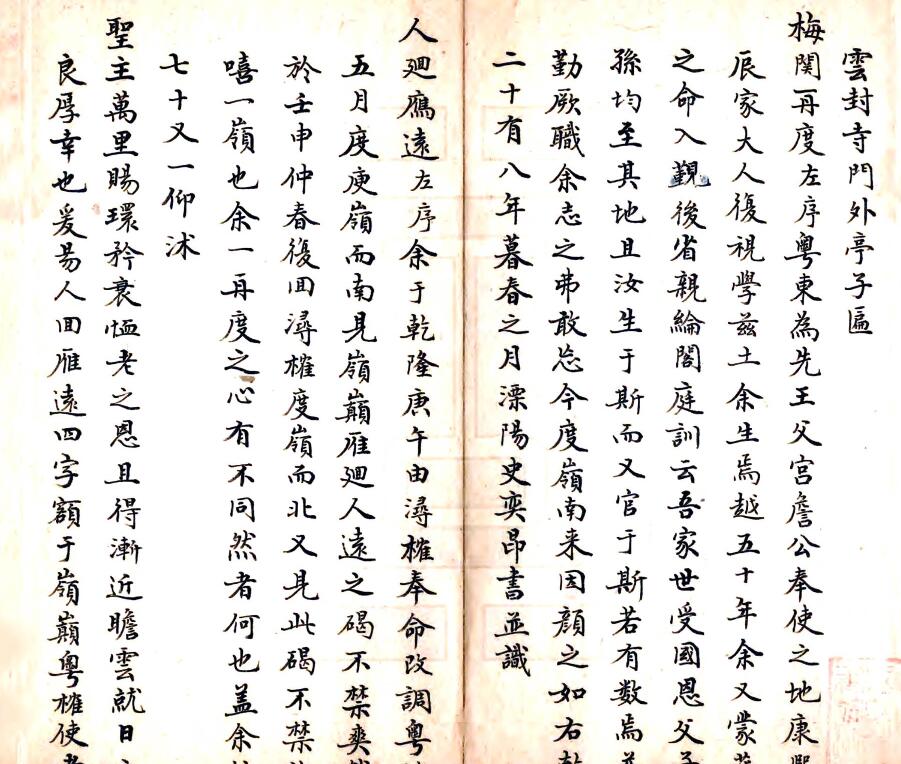 雲封寺門外亭子匾
梅関再度左序粤東為先王父宮詹公奉使之地康熙
辰家大人復視學兹土余生焉越五十年余又蒙
之命入覲後省親綸閣庭訓云吾家世受國恩父子
孫均至其地且汝生于斯而又官于斯若有数焉
勤厥職余志之弗敢忘今度嶺南来因顔之如右乾
二十有八年暮春之月溧陽史奕昂書並識
人廻鴈遠左序余于乾隆庚午由潯榷奉命改調粤
五月度庾嶺而南見嶺巔雁廻人遠之碣不禁爽
於壬申仲春復回潯榷度嶺而北又見此碣不禁
嘻一嶺也余一再度之心有不同然者何也盖余
七十又一仰沭
聖主萬里賜環矜衰恤老之恩且得漸近瞻雲就日
良厚幸也爰昜人回雁遠四字額于嶺巔粤榷使者